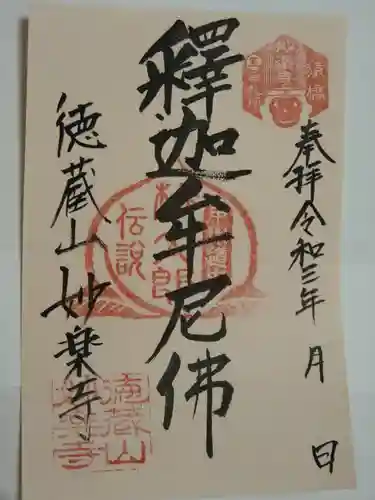 奉拝令和三年 月 日
釋迦牟尼佛
伝説
徳蔵山妙楽寺
徳蔵山
妙楽寺